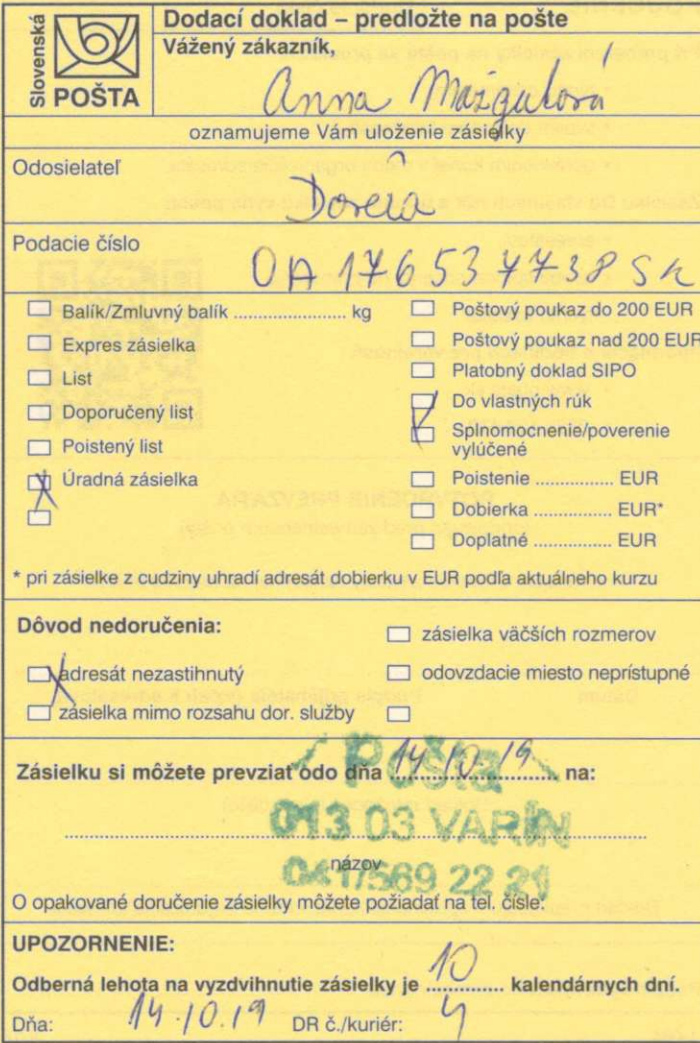 Slovenská
POŠTA
Dodací doklad – predložte na pošte
Vážený zákazník,
Anna
oznamujeme Vám uloženie zásielky
Odosielateľ
Podacie číslo
Balík/Zmluvný balík .................... kg
Expres zásielka
List
Doporučený list
Poistený list
Úradná zásielka
Poštový poukaz do 200 EUR
Poštový poukaz nad 200 EUR
Platobný doklad SIPO
Do vlastných rúk
Splnomocnenie/poverenie
vylúčené
Poistenie ............... EUR
Dobierka ............... EUR*
Doplatné ............... EUR
* pri zásielke z cudziny uhradí adresát dobierku v EUR podľa aktuálneho kurzu
Dôvod nedoručenia:
zásielka väčších rozmerov
adresát nezastihnutý
odovzdacie miesto neprístupné
zásielka mimo rozsahu dor. služby
Zásielku si môžete prevziať odo dňa 14.10.19 na:
Pošta
013 03 VARÍN
názov
041/569 22 21
O opakované doručenie zásielky môžete požiadať na tel. čísle:
UPOZORNENIE:
Odberná lehota na vyzdvihnutie zásielky je 10 kalendárnych dní.
Dňa: 14.10.19 DR č./kuriér: 4